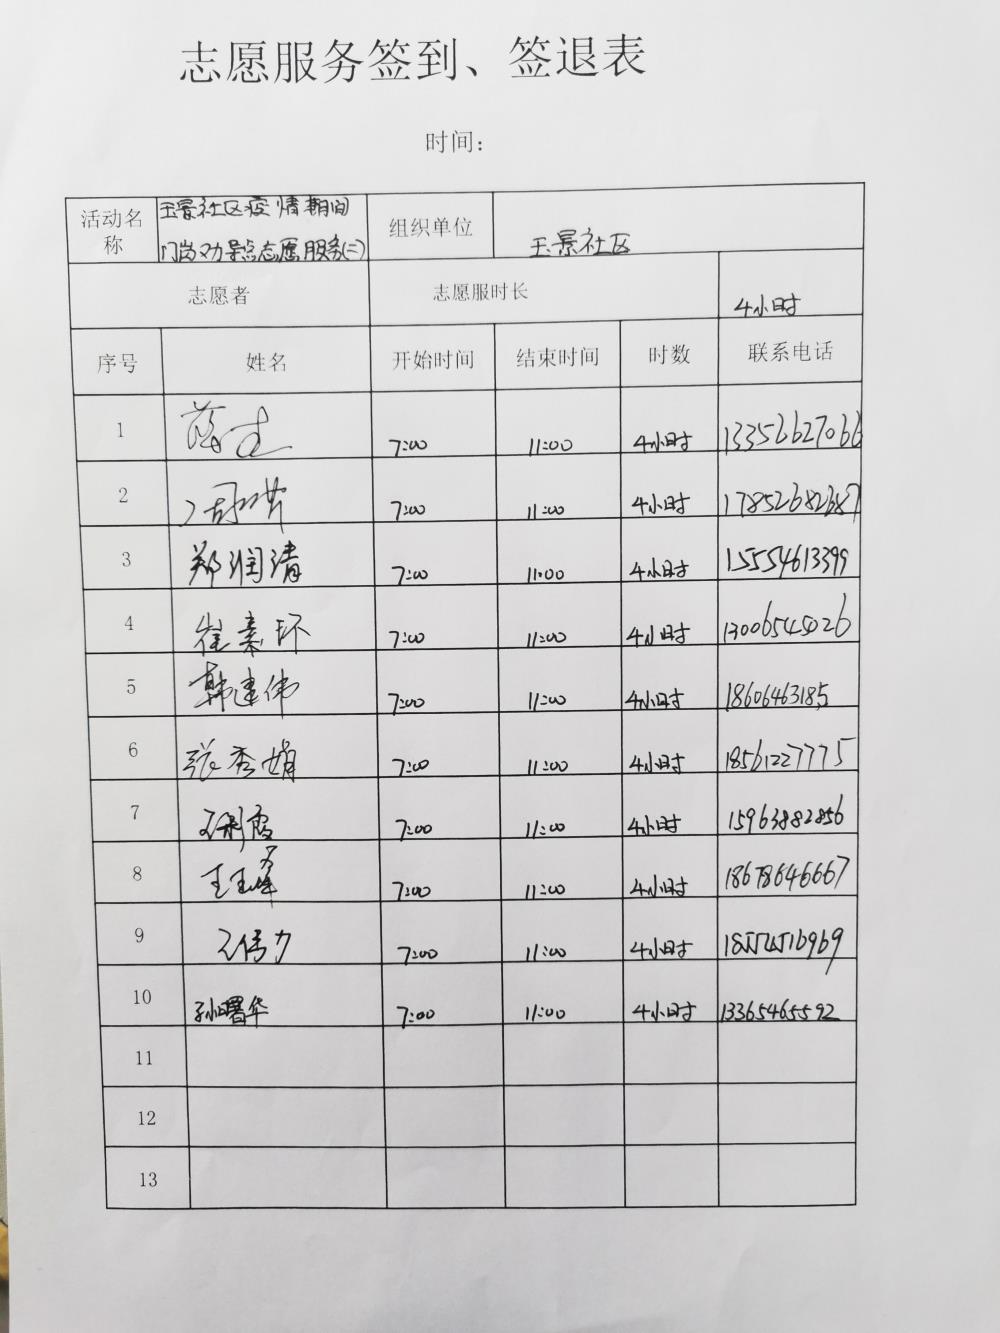 志愿服务签到、签退表
时间:
活动名称 玉景社区疫情期间门岗劝导点志愿服务(二) 组织单位 玉景社区
志愿者 志愿服时长 4小时
序号 姓名 开始时间 结束时间 时数 联系电话
1 7:00 11:00 4小时 13356627066
2 7:00 11:00 4小时 17852682687
3 郑润清 7:00 11:00 4小时 15554613399
4 崔素环 7:00 11:00 4小时 13006545026
5 韩建伟 7:00 11:00 4小时 18606463185
6 张秀娟 7:00 11:00 4小时 18561227775
7 7:00 11:00 4小时 15963882856
8 7:00 11:00 4小时 18678646667
9 王伟力 7:00 11:00 4小时
10 孙曙华 7:00 11:00 4小时 13365465592
11
12
13